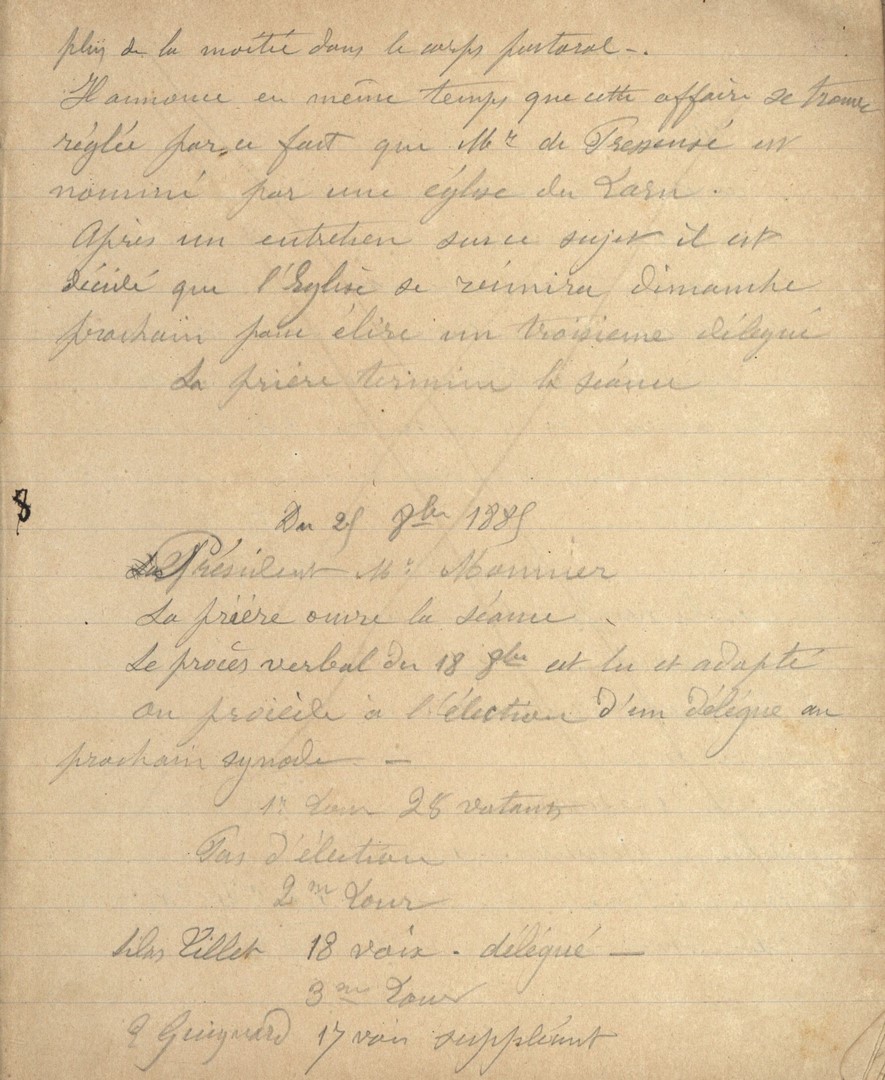 plus de la moitié dans le corps pastoral -.
Il annonce en même temps que cette affaire se trouve
réglée par ce fait que Mr de Pressensé est
nommé par une église du Tarn.
Après un entretien sur ce sujet il est
décidé que l'Eglise se réunira dimanche
prochain pour élire un troisieme délegué
La prière termine la séance
8
Du 25 8bre 1885
Président Mr. Monnier
La prière ouvre la séance.
Le procès verbal du 18 8bre est lu et adopté
On procède à l'élection d'un délégué au
prochain synode -
1r Tour 28 votants
Pas d'élection
2me Tour
Silas Tillet 18 voix - délégué -
3me Tour
Guignard 17 voix suppléant